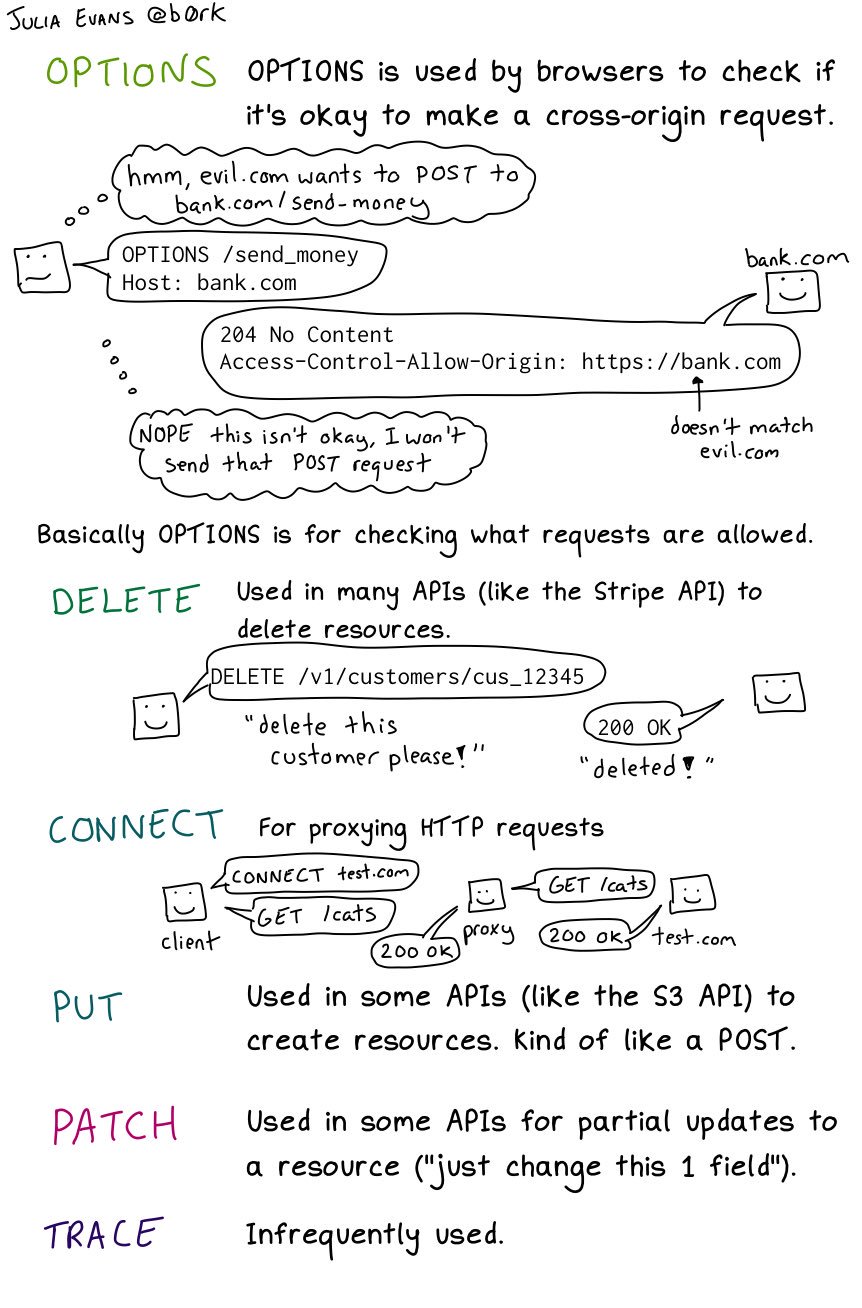 JULIA EVANS @b0rk
OPTIONS
OPTIONS is used by browsers to check if
it's okay to make a cross-origin request.
hmm, evil.com wants to POST to
bank.com/send-money
OPTIONS /send_money
Host: bank.com
bank.com
204 No Content
Access-Control-Allow-Origin: https://bank.com
doesn't match
evil.com
NOPE this isn't okay, I won't
send that POST request
Basically OPTIONS is for checking what requests are allowed.
DELETE
Used in many APIs (like the Stripe API) to
delete resources.
DELETE /v1/customers/cus_12345
"delete this
customer please!"
200 OK
"deleted!"
CONNECT
For proxying HTTP requests
CONNECT test.com
GET /cats
client
200 OK
proxy
GET /cats
200 OK
test.com
PUT
Used in some APIs (like the S3 API) to
create resources. kind of like a POST.
PATCH
Used in some APIs for partial updates to
a resource ("just change this 1 field").
TRACE
Infrequently used.